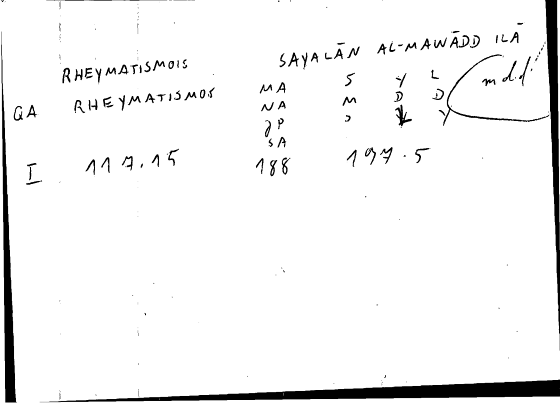 RHEYMATISMOIS SAYALĀN AL-MAWĀDD ILĀ
QA RHEYMATISMOS MA S Y L m.d.d.
NA M D D
JP
SA
I 117.15 188 197.5